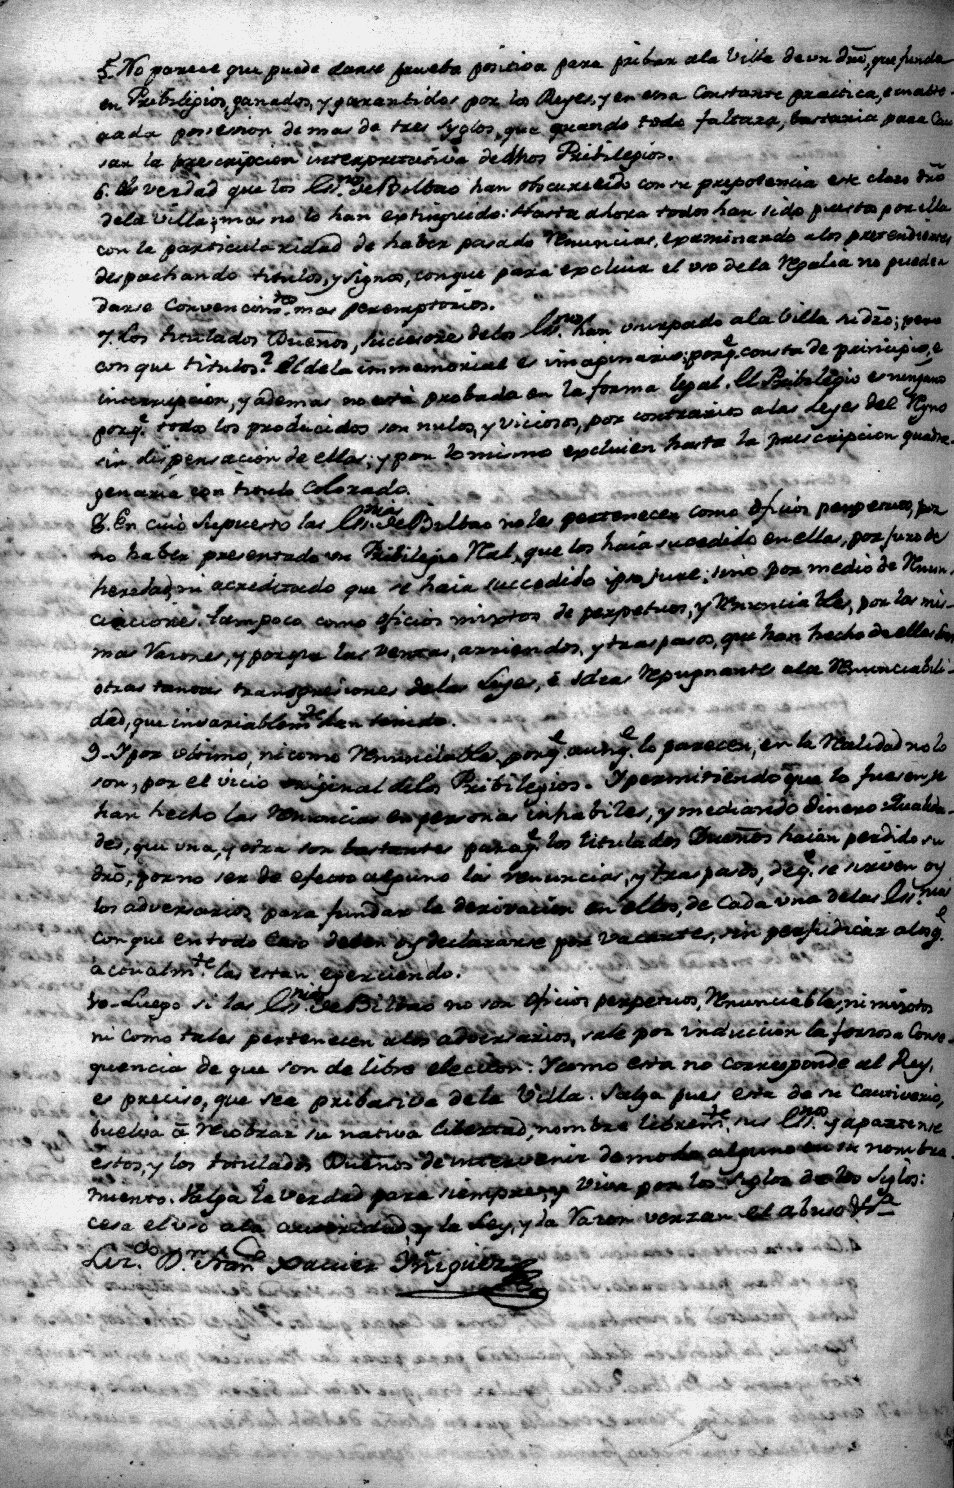 5. No parece que puede darse prueba positiva para pribar ala Villa de un dr̃o, que funda
en Pribilegios, ganados, y garantidos por los Reyes, y en una Constante practica, e
gada possession de mas de tres syglos, que quando todo faltara, bastaria para Cau
sar la prescripcion interpretativa de dhos Pribilegios.
6. Es verdad que los Ess.nos de Bilbao han obscurecido con su prepotencia este claro dr̃o
dela Villa; mas no lo han extinguido: Hasta ahora todos han sido puestos por ella
con la particularidad de haber pasado Renuncias, examinando alos pretendientes
despachando titulos, y signos, conque para excluir el uso dela Regalia no pueden
darse Convencim.tos mas peremptorios.
7. Los titulados Dueños, successores delos Ess.nos han usurpado ala Villa su dr̃o; pero
con que titulos? El dela immemorial es imaginario: porq.e consta de principio, e
interrupcion, y ademas no està probada en la forma legal. El Pribilegio es ninguno
porq.e todos los producidos son nulos, y viciosos, por contrarios a las Leyes del Rgno
sin dispensacion de ellas; y por lo mismo excluien hasta la prescripcion quadra-
genaria con titulo Colorado.
8. En cuio supuesto las Ess.nias de Bilbao no les pertenecen como oficios perpetuos, por
no haber presentado un Pribilegio Real, que los haia sucedido en ellas, por juro de
heredad, ni acreditado que se haia succedido ipso jure; sino por medio de Renun-
ciaciones. Tampoco como oficios mixtos de perpetuos, y Renunciables, por las mis-
mas Razones, y porque las ventas, arriendos, y traspasos, que han hecho de ellas son
otras tantas transgresiones delas Leyes, è ideas Repugnantes ala Renunciabili-
dad, que invariablem.te han tenido.
9. I por ultimo, ni como Renunciables, porq.e aunq.e lo parecen, en la Realidad no lo
son, por el vicio original delos Pribilegios. I permitiendo que lo fuesen, se
han hecho las renuncias en personas inhabiles, y mediando dinero
des, que una, y otra son bastantes paraq.e los titulados Dueños haian perdido su
dr̃o, por no ser de efecto alguno las renuncias, y traspasos, deq.e se sirven oy
los adversarios para fundar la derivacion en ellos, de Cada una delas Ess.nias
conque en todo Caso deben oy declararse por vacantes, sin perjudicar alos q.e
actualm.te las estan egerciendo.
10. Luego si las Ess.nias de Bilbao no son oficios perpetuos, Renunciables, ni mixtos
ni como tales pertenecen alos adversarios, sale por induccion la forzosa Conse-
quencia de que son de libre eleccion: I como esta no corresponde al Rey,
es preciso, que sea pribativa de la Villa. Salga pues esta de su Cautiverio,
buelva à recobrar su nativa libertad, nombre librem.te sus Ess.nos y apartense
estos, y los titulados Dueños de intervenir de modo alguno en su nombra-
miento. Salga la verdad para siempre, y viva por los Siglos de los Siglos:
cesa el uso ala autoridad, y la Ley, y la Razon venzan el abuso &ra
Liz.do D.n Fran.co Xavier Yñiguez